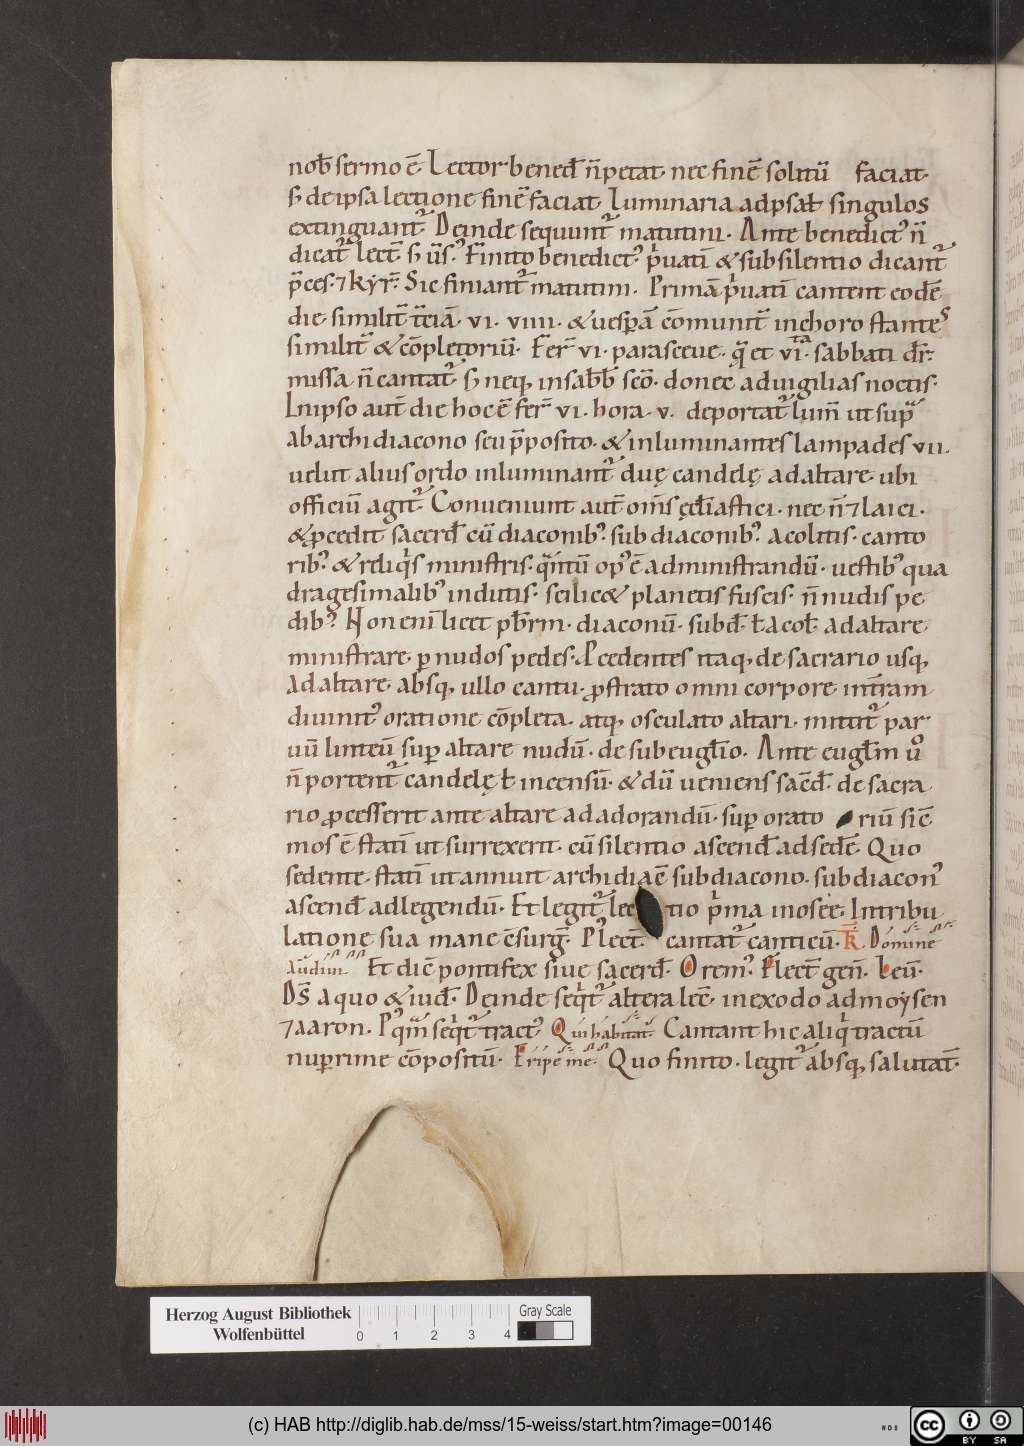 nob̄ sermo ē. Lector bened̄ n̄ petat. nec finē solitū faciat.
s; de ipsa lectione finē faciat. Luminaria ad psal̄ singulos
extinguant᷑. Deinde sequunt᷑ matutini. Ante benedict᷒ n̄
dicat᷑ lect̄. s; ūs᷒. Finito benedict᷒. p̓uatī & sub silentio dicant᷑
p̄ces. ⁊ kyr̄. Sic finiant᷑ matutini. Primā p̓uatī cantent eodē
die. similit̄ t̄ciā. vi. viiii. & uesꝑā cōmunit̄ in choro stantes
similit̄ & cōpletoriū. Fer̄ vi. parasceue. q̄ et vi͞ta. sabbati dr̄.
missa n̄ cantat᷑. s; neq; in sabb̄ scō. donec ad uigilias noctis.
In ipso aut̄ die hoc ē fer̄ vi. hora. v. deportat᷑ lum̄ ut sup̄
ab archidiacono seu p̄posito. & inluminantes lampades vii.
uelut alius ordo inluminant᷑ duę candelę ad altare. ubi
officiū agit᷑. Conueniunt aut̄ om̄s ęcl̄iastici. nec n̄ ⁊ laici.
& ꝓcedit sacerd̄ cū diaconib᷒. subdiaconib᷒. acolitis. canto
rib᷒. & reliq̓s ministris. q̄ntū op᷒ ē administrandū. uestib᷒ qua
dragesimalib᷒ indutis. scilic& planetis fuscis. n̄ nudis pe
dib᷒. Non enī licet pb̄rm. diaconū. subd̄. ł acol̄. ad altare
ministrare. ꝑ nudos pedes. Ꝓcedentes itaq; de sacrario usq;
ad altare. absq; ullo cantu. ꝓstrato omni corpore. int̄ram
diuinit᷒ oratione cōpleta. atq; osculato altari. mittit᷑ par
uū linteū suꝑ altare nudū. de sub eugl̄io. Ante eugl̄m ūo
n̄ portent᷑ candelę ł incensū. & dū ueniens sac̄d̄. de sacra
rio ꝓcesserit ante altare ad adorandū. suꝑ orato riū sic̄
mos ē statī ut surrexerit. cū silentio ascend̄ ad sedē. Quo
sedente. statī ut annuit archidiac̄ subdiacono. subdiacon᷒
ascend̄ ad legendū. Et legit᷑ lec tio p̓ma in oseę. In tribu
latione sua mane c̄surḡ. P᷒ lect̄ cantat᷑ canticū. R̄. Domine
audiui. Et dic̄ pontifex siue sacerd̄. Orem᷒. Flect̄ gen̄. Leū.
Ds̄ a quo & iud̄. Deinde seq̓t᷑ altera lec̄. in exodo ad moẏsen
⁊ aaron. P᷒q̄m seq̓t᷑ tract᷒ Qui habitat. Cantant hic aliq̓ tractū
nuꝑrime cōpositū. Eripe me. Quo finito. legit᷑ absq; salutat̄.
Herzog August Bibliothek
Wolfenbüttel
0 1 2 3 4
Gray Scale
(c) HAB http://diglib.hab.de/mss/15-weiss/start.htm?image=00146
WDB
cc BY SA